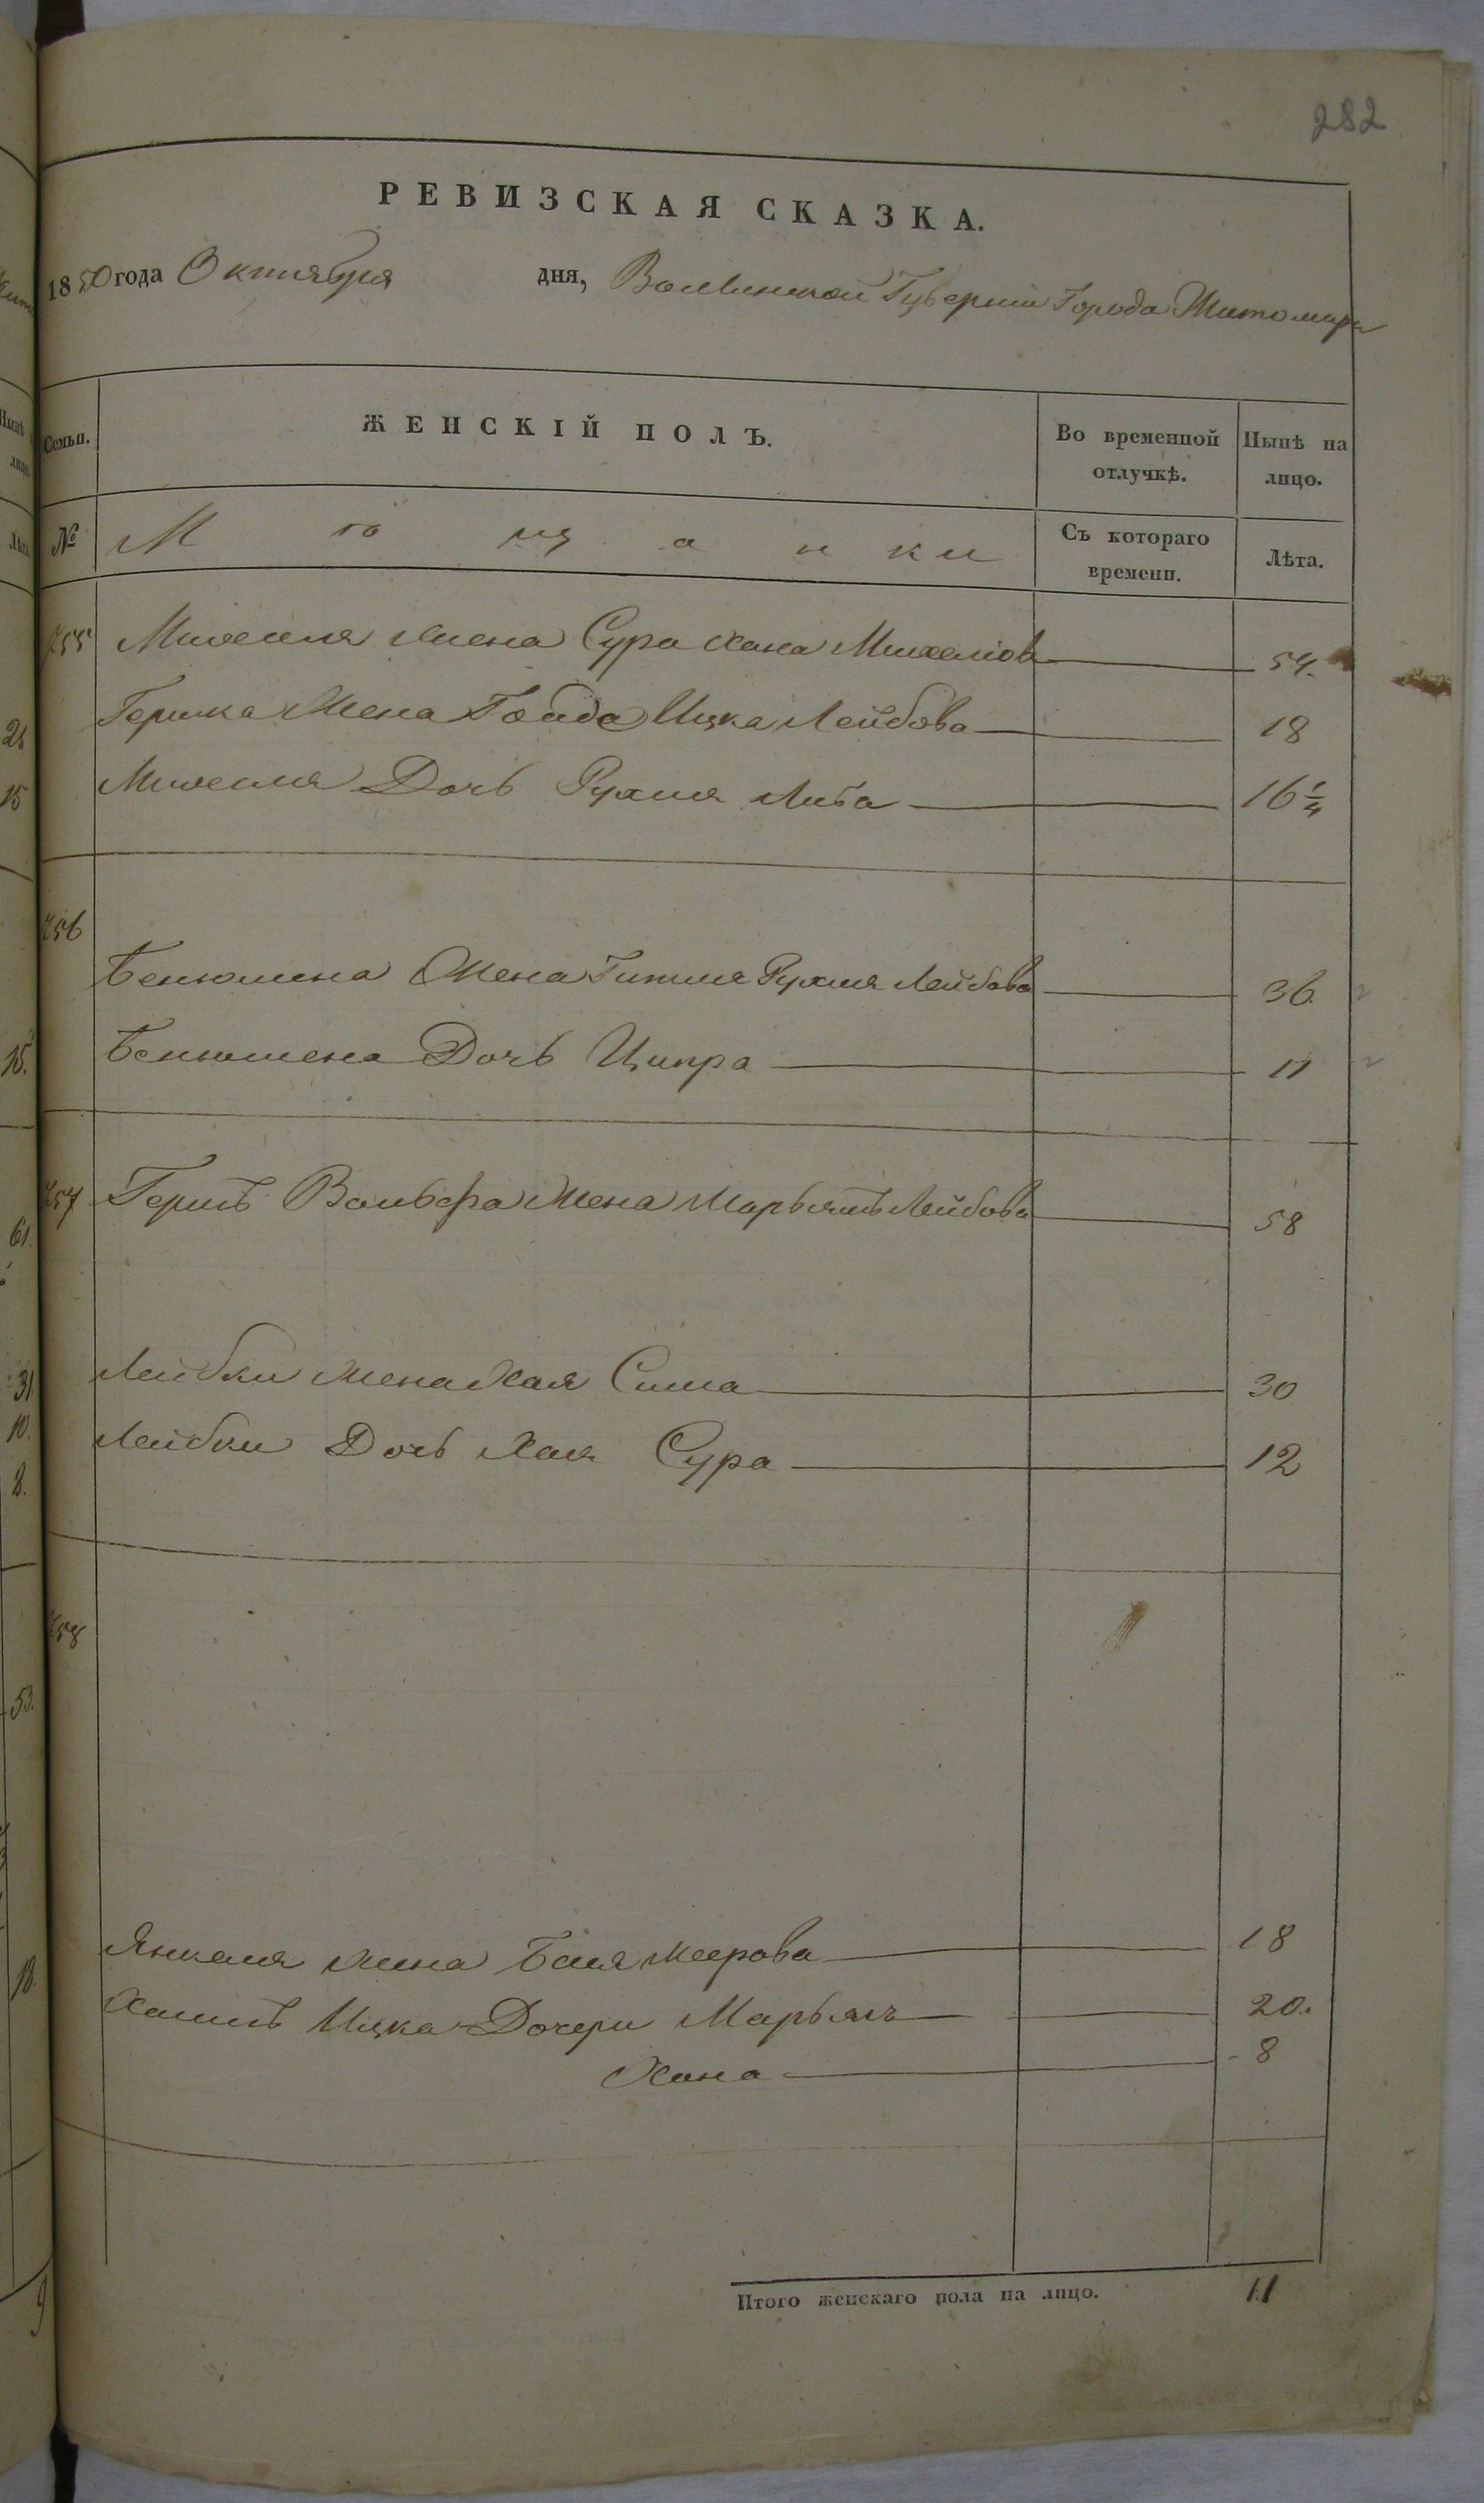 282
РЕВИЗСКАЯ СКАЗКА.
1850 года Октября дня, Волынской Губернии Города Житомира
Семьи. ЖЕНСКІЙ ПОЛЪ. Во временной отлучкѣ. Нынѣ на лицо.
№ Мѣщанки Съ котораго времени. Лѣта.
755 Михеля жена Сура Хана Михелiова 54.
Гершка Жена Гольда Ицка Лейбова 18
Михеля Дочь Рухля Либа 16 1/4
756
Бенюмена Жена Гитля Рухля Лейбова 36.
Бенюмена Дочь Ципра 11
757 Гершъ Вольфа Жена Марьямъ Лейбова 58
Лейбки жена Хая Сима 30
Лейбки Дочь Хая Сура 12
758
Янкеля жена Бейля Меерова 18
Хаимъ Ицка Дочери Марьямъ 20.
Хана 8
Итого женскаго пола на лицо. 11